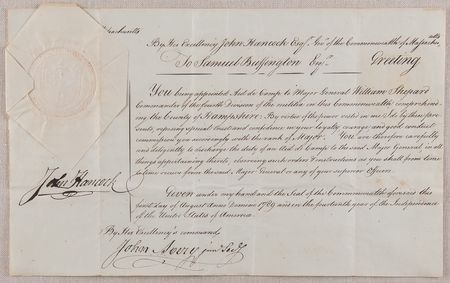 By His Excellency John Hancock Esqr. Govr. of the Commonwealth of Massachusetts
To Samuel Buffington Esqr. Greeting
You being appointed Aid de Camp to Major General William Shepard
Commander of the fourth Division of the militia in this Commonwealth comprehend-
ing the County of Hampshire. By virtue of the power vested in me I do by these pre-
sents, reposing special trust and confidence in your loyalty courage and good conduct
commission you accordingly with the rank of Major. You are therefore carefully
and diligently to discharge the duty of an Aid de Camp to the said Major General in all
things appertaining thereto, observing such orders & instructions as you shall from time
to time receive from the said Major General or any of your superior Officers.
John Hancock
Given under my hand and the Seal of the Commonwealth aforesaid this
first Day of August Anno Domini 1789 and in the fourteenth year of the Independence
of the United States of America.
By His Excellency's command
John Avery junr. Secy.